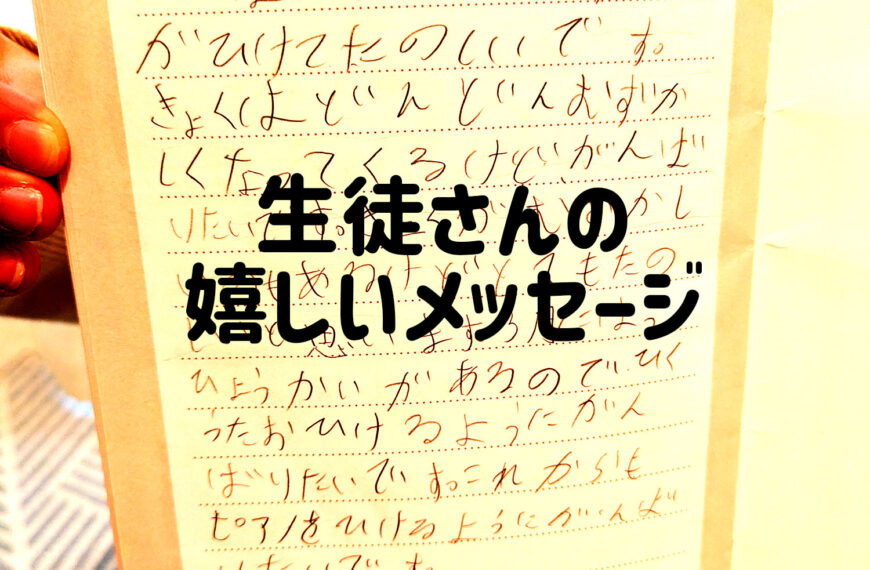 がひけてたのしいです。
きょくはどんどんむずか
しくなってくるけど、がんば
りたいです。 かし
生徒さんの
あるけどとてもたの
嬉しいメッセージ
と思います
ひょうかいがあるので、ひく
うたおひけるようにがん
ばりたいです。これからも
ピアノをひけるようにがんば
りたいです。